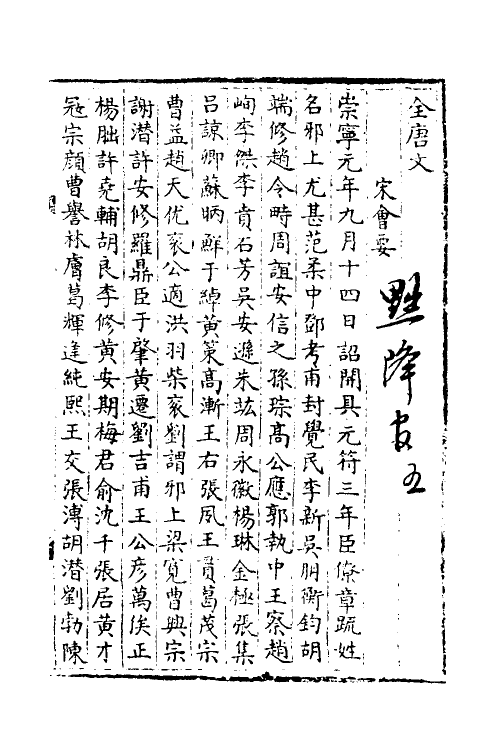 全唐文
宋會要
黜降官五
崇寧元年九月十四日詔開具元符三年臣僚章疏姓
名邪上尤甚范柔中鄧考甫封覺民李新吳朋衡鈞胡
端修趙令時周誼安信之孫琮高公應郭執中王察趙
峋李傑李賁石芳吳安遜朱竑周永徽楊琳金極張集
呂諒卿蘇昞鮮于綽黃策高漸王右張夙王貢葛茂宗
曹益趙天优裒公適洪羽柴裒劉謂邪上梁寬曹興宗
謝潛許安修羅鼎臣于肇黃遷劉吉甫王公彥萬俟正
楊朏許堯輔胡良李修黃安期梅君俞沈千張居黃才
冦宗顏曹譽林膚葛輝逢純熙王交張溥胡潛劉勃陳